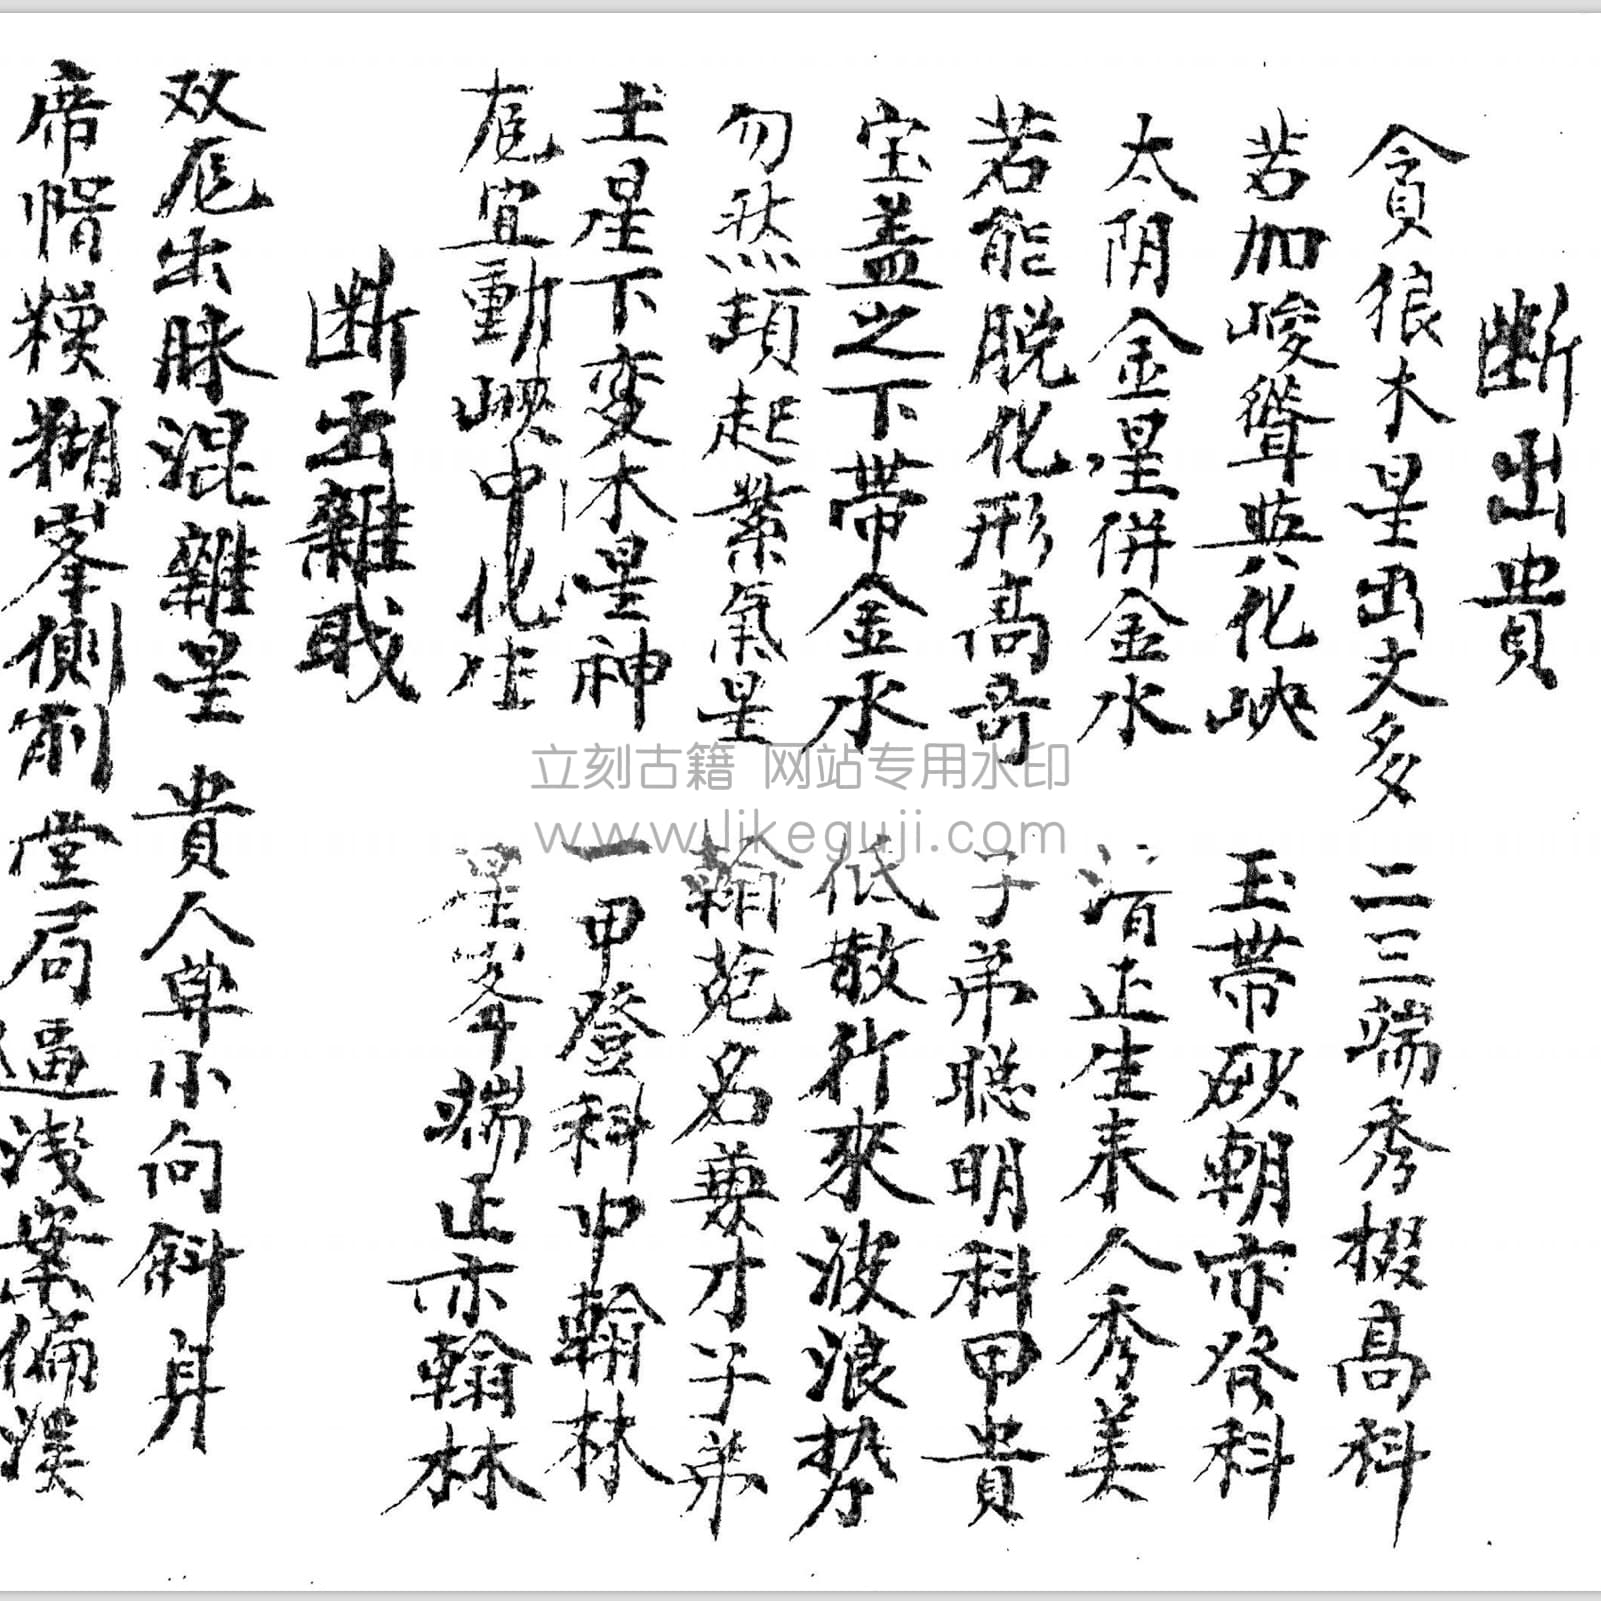 断出貴
貪狼木星出丈多 二三端秀掇高科
若加峻聳與化峽 玉帯砍朝亦登科
太阴金星併金水 清正生来人秀美
若能脱化形高奇 子弟聪明科甲貴
宝盖之下带金水 低散行來波浪势
勿然頓起紫氣星 翰苑名兼才子弟
土星下变木星神 一甲登科中翰林
宜動峽中化生 星峯端正亦翰林
断出雜職
双出脉混雜星 貴人尊小向斜身
模糊峯側削 堂局逼浅案偏
立刻古籍 网站专用水印
www.likeguji.com